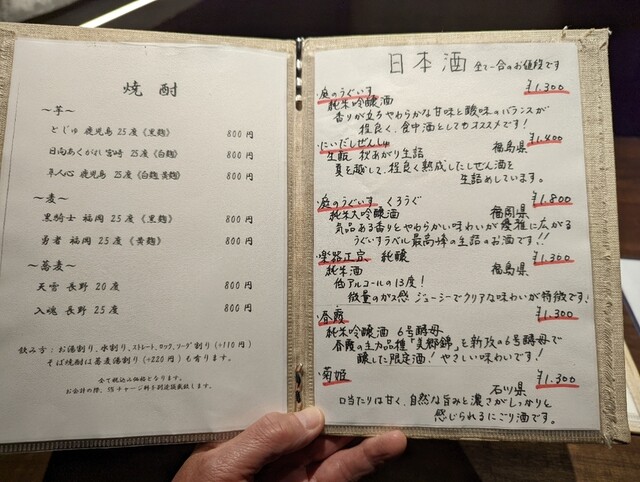 焼酎
〜芋〜
とじゅ 鹿児島 25度《黒麹》 800円
日向あくがれ 宮崎 25度《白麹》 800円
隼人心 鹿児島 25度《白麹 黄麹》 800円
〜麦〜
黒騎士 福岡 25度《黒麹》 800円
勇者 福岡 25度《黄麹》 800円
〜蕎麦〜
天雲 長野 20度 800円
入魂 長野 25度 800円
飲み方:お湯割り、水割り、ストレート、ロック、ソーダ割り(+110円)
そば焼酎は蕎麦湯割り(+220円)も有ります。
全て税込み価格となります。
お会計の際、5%チャージ料を別途頂戴致します。
日本酒 全て一合のお値段です
・庭のうぐいす ¥1.300
純米吟醸酒
香りが立ちやわらかな甘味と酸味のバランスが
程良く、食中酒としてもオススメです!
・にいだしぜんしゅ 福島県 ¥1.400
生酛 秋あがり生詰
夏を越して、程良く熟成したしぜん酒を
生詰めしています。
・庭のうぐいす くろうぐ ¥1.800
純米大吟醸酒 福岡県
気品ある香りとやわらかい味わいが優雅に広がる
うぐいすラベル最高峰の生詰のお酒です!!
・楽器正宗 純醸 ¥1.300
純米酒 福島県
低アルコールの13度!
微量のガス感 ジューシーでクリアな味わいが特徴です!
・春霞 ¥1.300
純米吟醸酒 6号酵母
春霞の主力品種「美郷錦」を新政の6号酵母で
醸した限定酒!やさしい味わいです!
・菊姫 ¥1.300
石川県
口当たりは甘く、自然な旨みと濃さがしっかりと
感じられるにごり酒です。